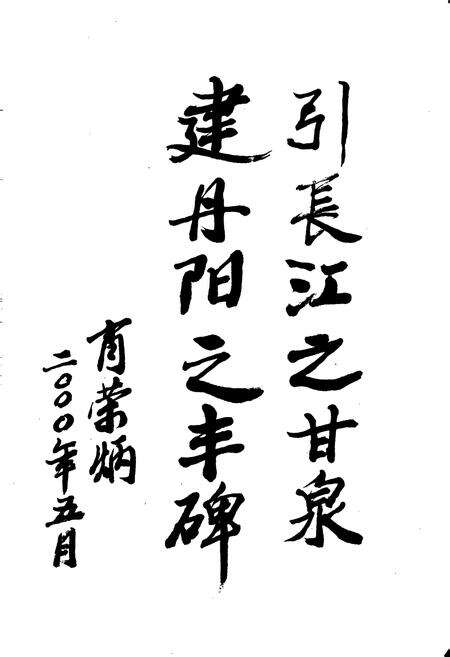 引長江之甘泉
建丹阳之丰碑
肖荣炳
二○○○年五月